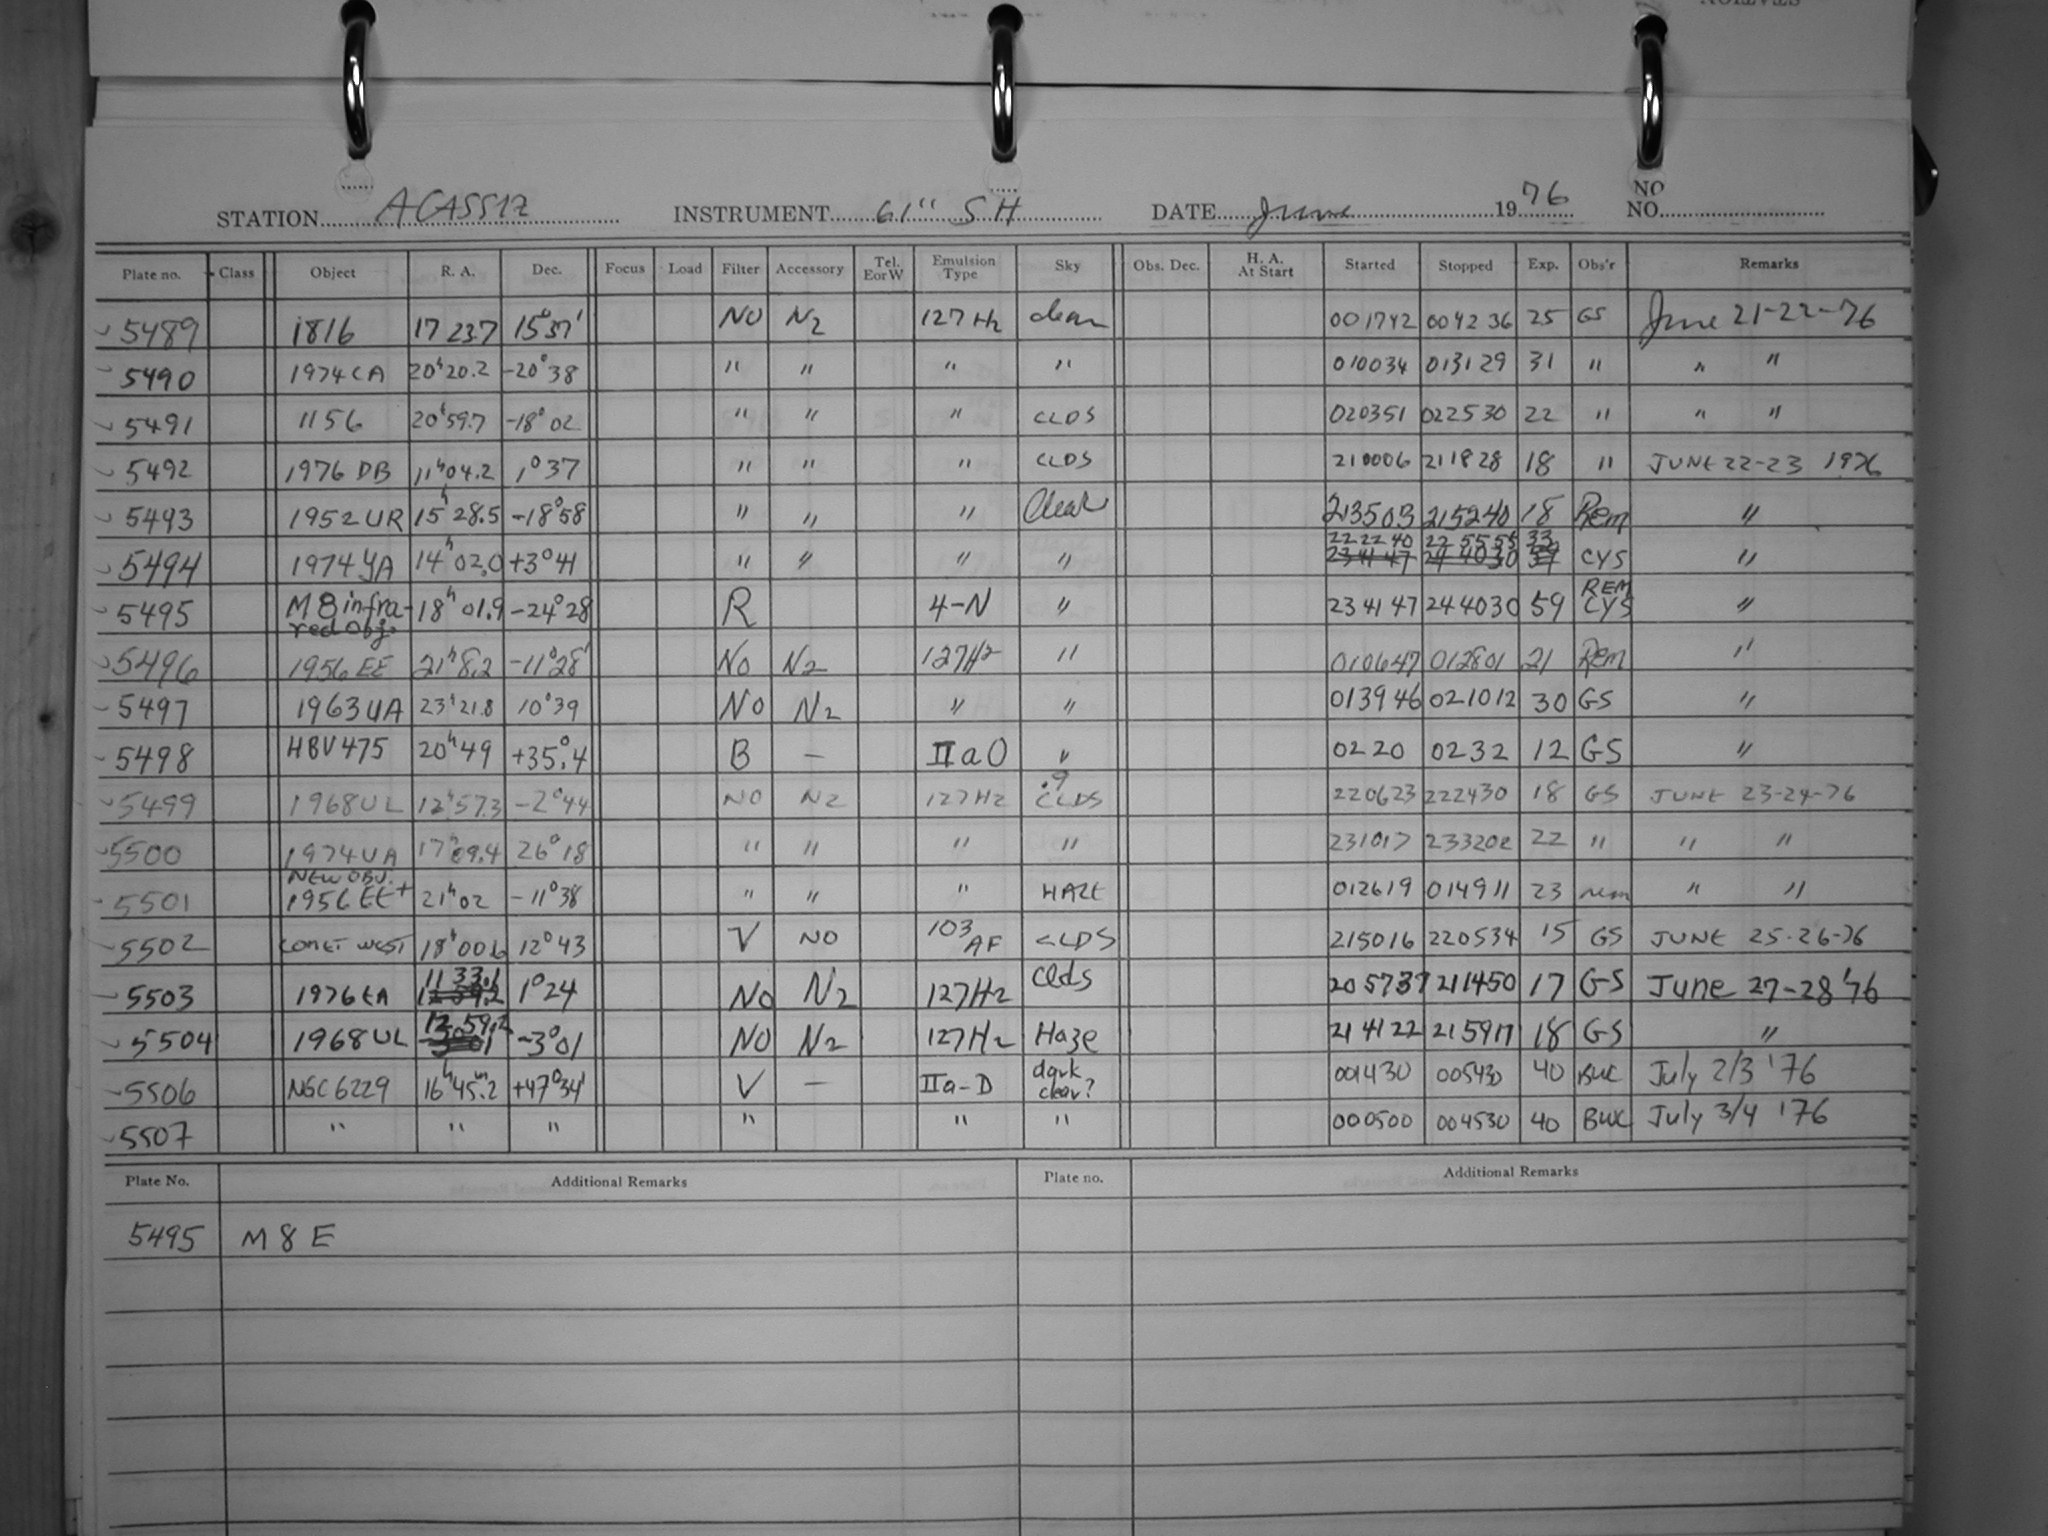 STATION AGASSIZ INSTRUMENT 61" SH DATE June 1976 NO
NO
Plate no. Class Object R. A. Dec. Focus Load Filter Accessory Tel. EorW Emulsion Type Sky Obs. Dec. H. A. At Start Started Stopped Exp. Obs'r Remarks
5489 1816 17 23.7 15°37' NO N2 127 H2 clear 001742 004236 25 GS June 21-22-76
5490 1974CA 20h20.2 -20°38 " " " " 010034 013129 31 " " "
5491 1156 20h59.7 -18°02 " " " CLDS 020351 022530 22 " " "
5492 1976 DB 11h04.2 1°37 " " " CLDS 210006 211828 18 " JUNE 22-23 1976
5493 1952UR 15h28.5 -18°58 " " " Clear 213503 215240 18 Rem "
5494 1974YA 14h02.0 +3°41 " " " " 222240 225555 33 CYS "
234147 244030 59
5495 M8 infra-red obj. 18h01.9 -24°28 R 4-N " 234147 244030 59 REM CYS "
5496 1956EE 21h8.2 -11°28' NO N2 127H2 " 010647 012801 21 Rem "
5497 1963UA 23h21.8 10°39 NO N2 " " 013946 021012 30 GS "
5498 HBV475 20h49 +35°.4 B — IIaO " 0220 0232 12 GS "
5499 1968UL 12h57.3 -2°44 NO N2 127H2 .9 CLDS 220623 222430 18 GS JUNE 23-24-76
5500 1974UA 17h09.4 26°18 " " " " 231017 233202 22 " " "
5501 NEW OBJ. 1956EE+ 21h02 -11°38 " " " HAZE 012619 014911 23 rem " "
5502 COMET WEST 18h00.6 12°43 V NO 103 AF CLDS 215016 220534 15 GS JUNE 25-26-76
5503 1976EA 11 33.1 12 59.2 1°24 NO N2 127H2 Clds 205737 211450 17 GS June 27-28 '76
5504 1968UL 12 59.2 -3°01 NO N2 127H2 Haze 214122 215917 18 GS "
5506 NGC6229 16h45m.2 +47°34' V — IIa-D dark clear? 001430 005430 40 BWC July 2/3 '76
5507 " " " " " " 000500 004530 40 BWC July 3/4 '76
Plate No. Additional Remarks Plate no. Additional Remarks
5495 M 8 E